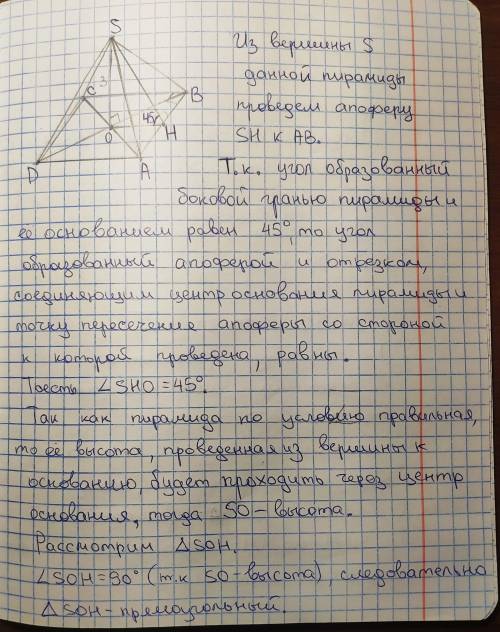 S
Из вершины S
данной пирамиды
проведем апоферу
SH к AB.
C
3
B
45°
H
O
D
A
Т.к. угол образованный
боковой гранью пирамиды и
её основанием равен 45°, то угол
образованный апоферой и отрезком,
соединяющим центр основания пирамиды и
точку пересечение апоферы со стороной
к которой проведена, равны.
Тоесть ∠SHO = 45°.
Так как пирамида по условию правильная,
то её высота, проведенная из вершины к
основанию, будет проходить через центр
основания, тогда SO - высота.
Рассмотрим △SOH.
∠SOH = 90° (т.к SO - высота), следовательно
△SOH - прямоугольный.